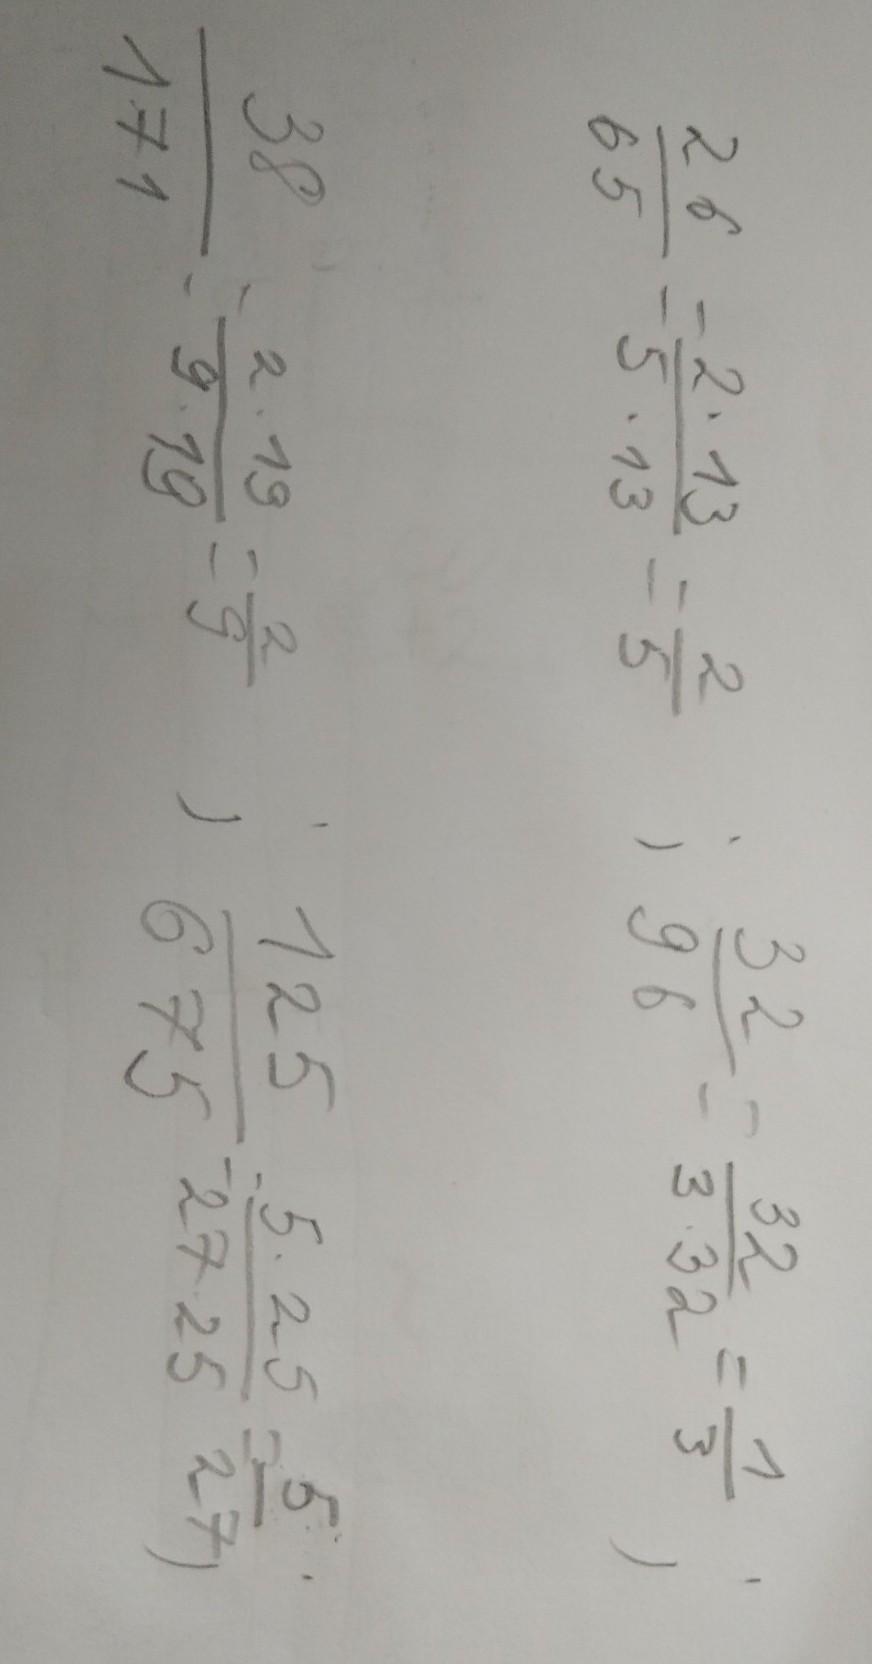 26/65 = 2·13/5·13 = 2/5 ; 32/96 = 32/3·32 = 1/3 ;
38/171 = 2·19/9·19 = 2/9 ; 125/675 = 5·25/27·25 = 5/27 ;